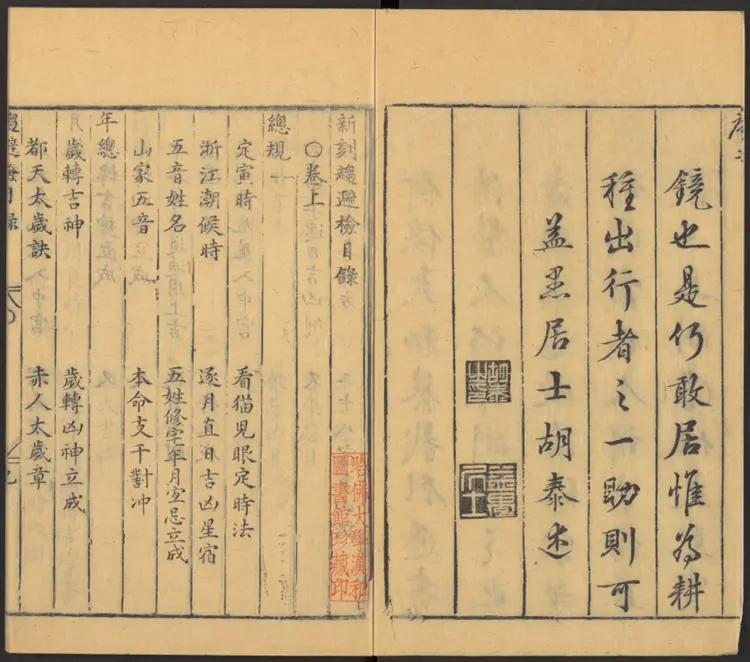 鏡也是仍敢居惟為耕
種出行者之一助則可
盖愚居士胡泰述
新刻趨避檢目錄
○卷上
總規一
定寅時 看猫兒眼定時法
浙江潮候時 逐月直日吉凶星宿
五音姓名 五姓修宅年月宜忌立成
山家五音 本命支干對冲
年總
歲轉吉神 歲轉凶神立成
都天太歲訣 赤人太歲章
趨避檢目錄
哈佛大學漢和
圖書館珍藏印